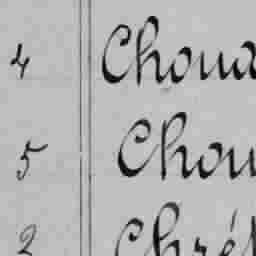 4 Choua
5 Chou
2 Chrét